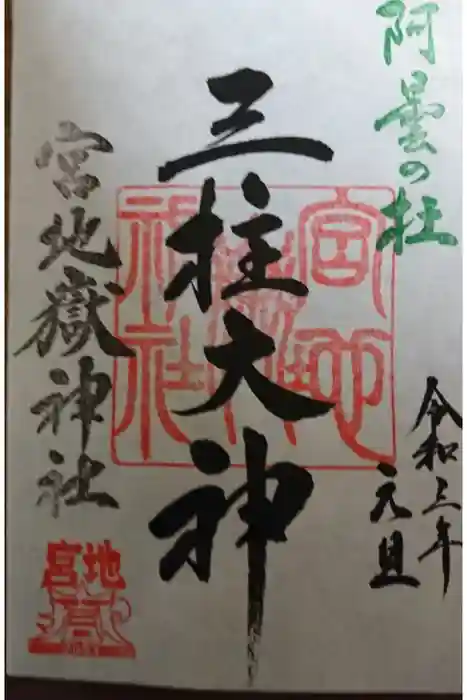 阿曇の杜
令和三年
元旦
三柱大神
宮地嶽神社
宮地嶽神社
宮地